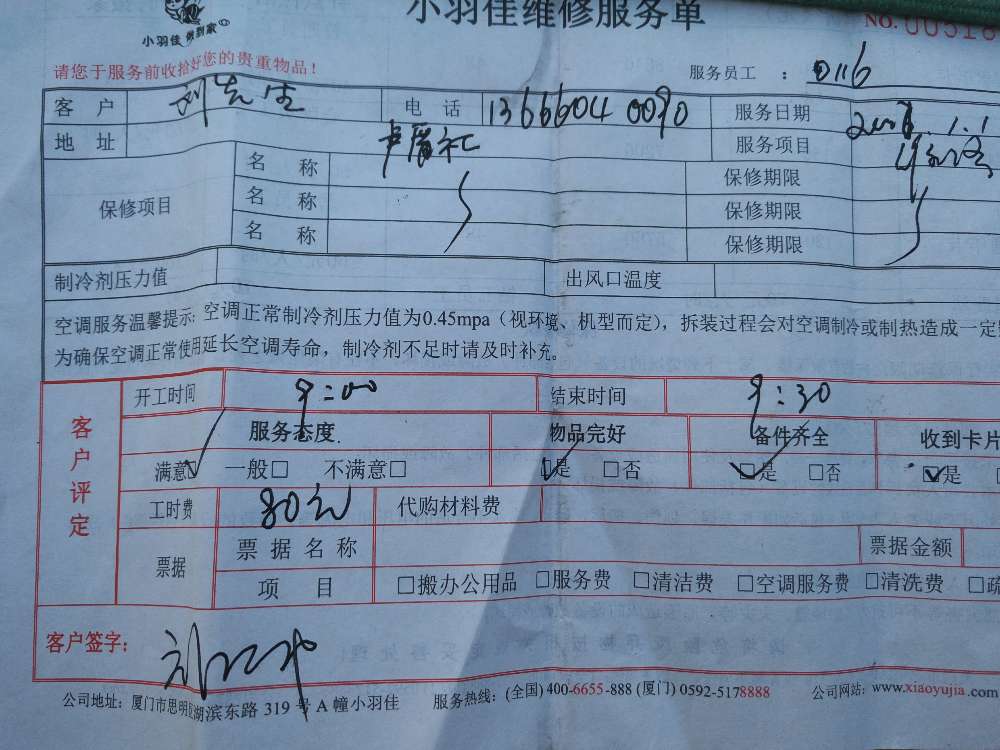 小羽佳维修服务单
小羽佳 做到家
请您于服务前收拾好您的贵重物品！
服务员工 ： 0116
客 户 刘先生 电 话 13666040090 服务日期
地 址 服务项目
保修项目 名 称 保修期限
名 称 保修期限
名 称 保修期限
制冷剂压力值 出风口温度
空调服务温馨提示: 空调正常制冷剂压力值为0.45mpa（视环境、机型而定），拆装过程会对空调制冷或制热造成一定
为确保空调正常使用延长空调寿命，制冷剂不足时请及时补充。
客户评定 开工时间 9:00 结束时间 9:30
服务态度 物品完好 备件齐全 收到卡片
满意☑ 一般□ 不满意□ ☑是 □否 ☑是 □否 ☑是
工时费 80元 代购材料费
票据 票 据 名 称 票据金额
项 目 □搬办公用品 □服务费 □清洁费 □空调服务费 □清洗费 □疏
客户签字:
公司地址: 厦门市思明区湖滨东路 319 号 A 幢小羽佳 服务热线: (全国) 400-6655-888 (厦门) 0592-5178888 公司网站: www.xiaoyujia.com